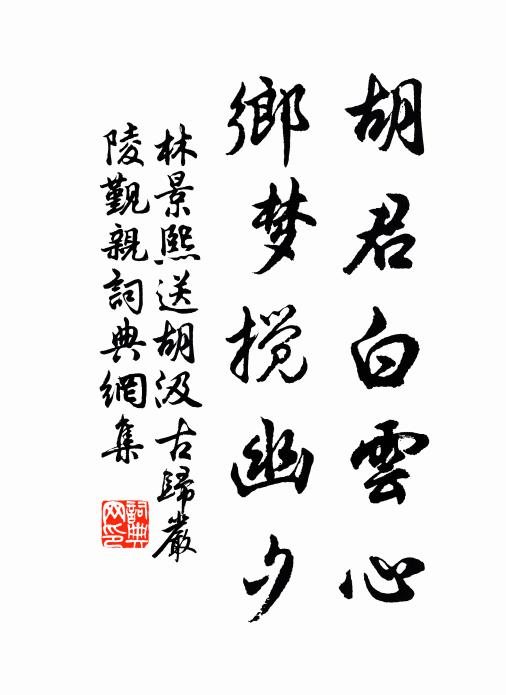 胡君白雲心
鄉梦搅幽夕
林景熙送胡汲古歸嚴
陵覲親詞典網集
詞典
网印